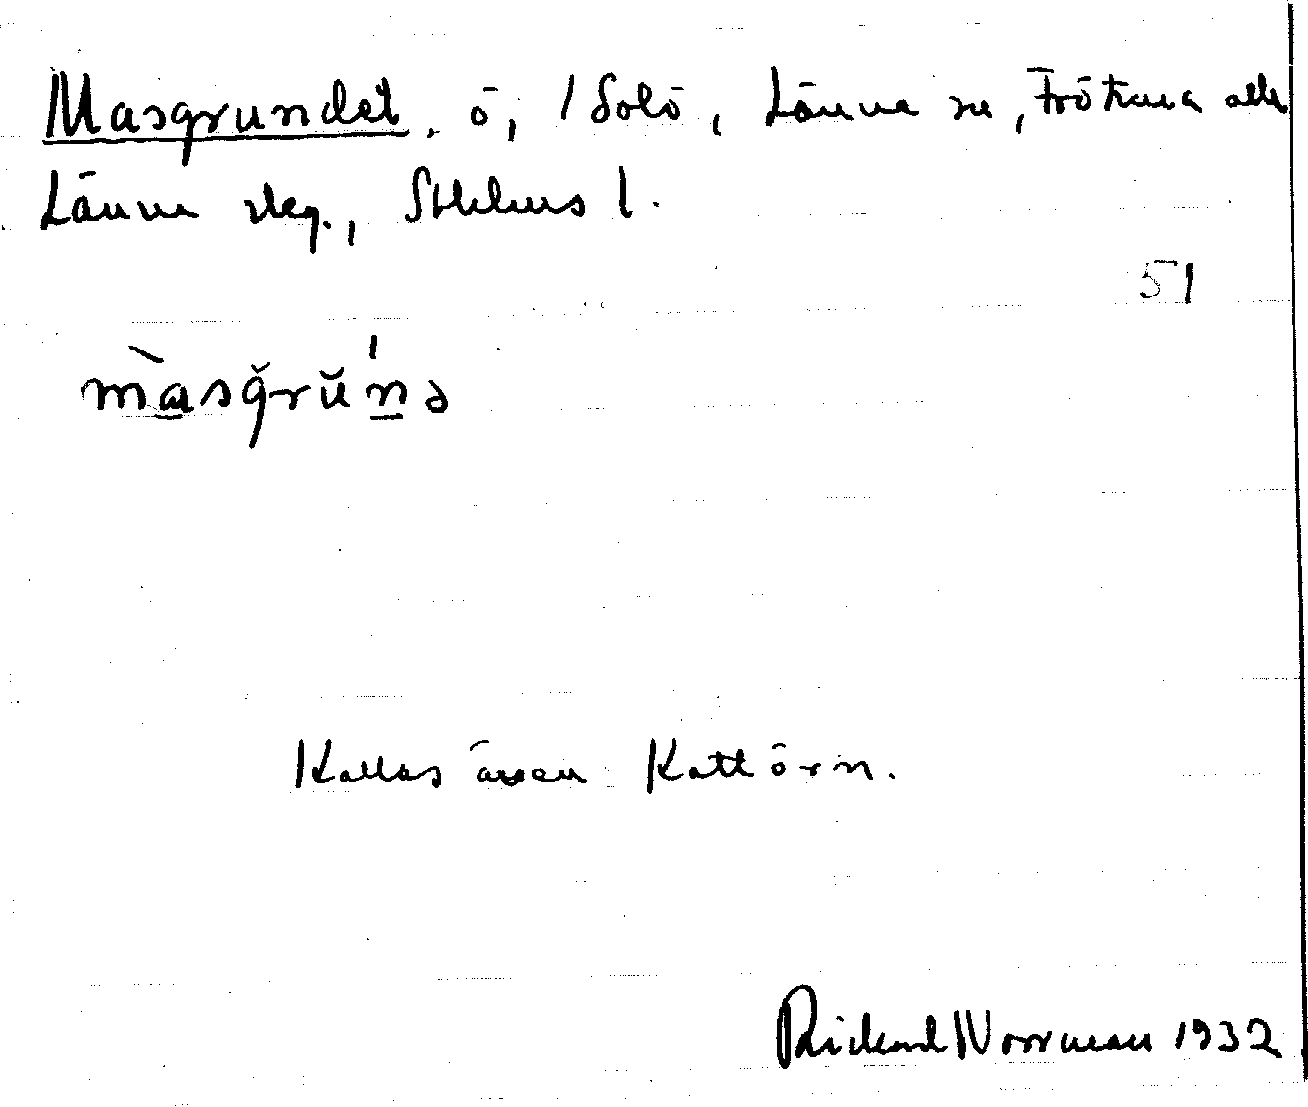 Masgrundet, ö, / Solö, Länna sn, Frötuna och
Länna skg., Sthlms l.
51
màsgrŭ́nə
Kallas även Kattörn.
Rickard Norrman 1932